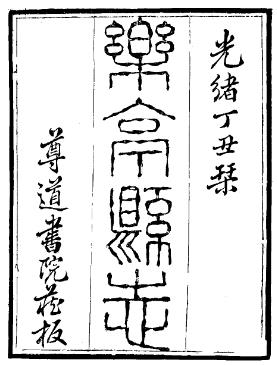 光緒丁丑琹
樂亭縣志
尊道書院藏板